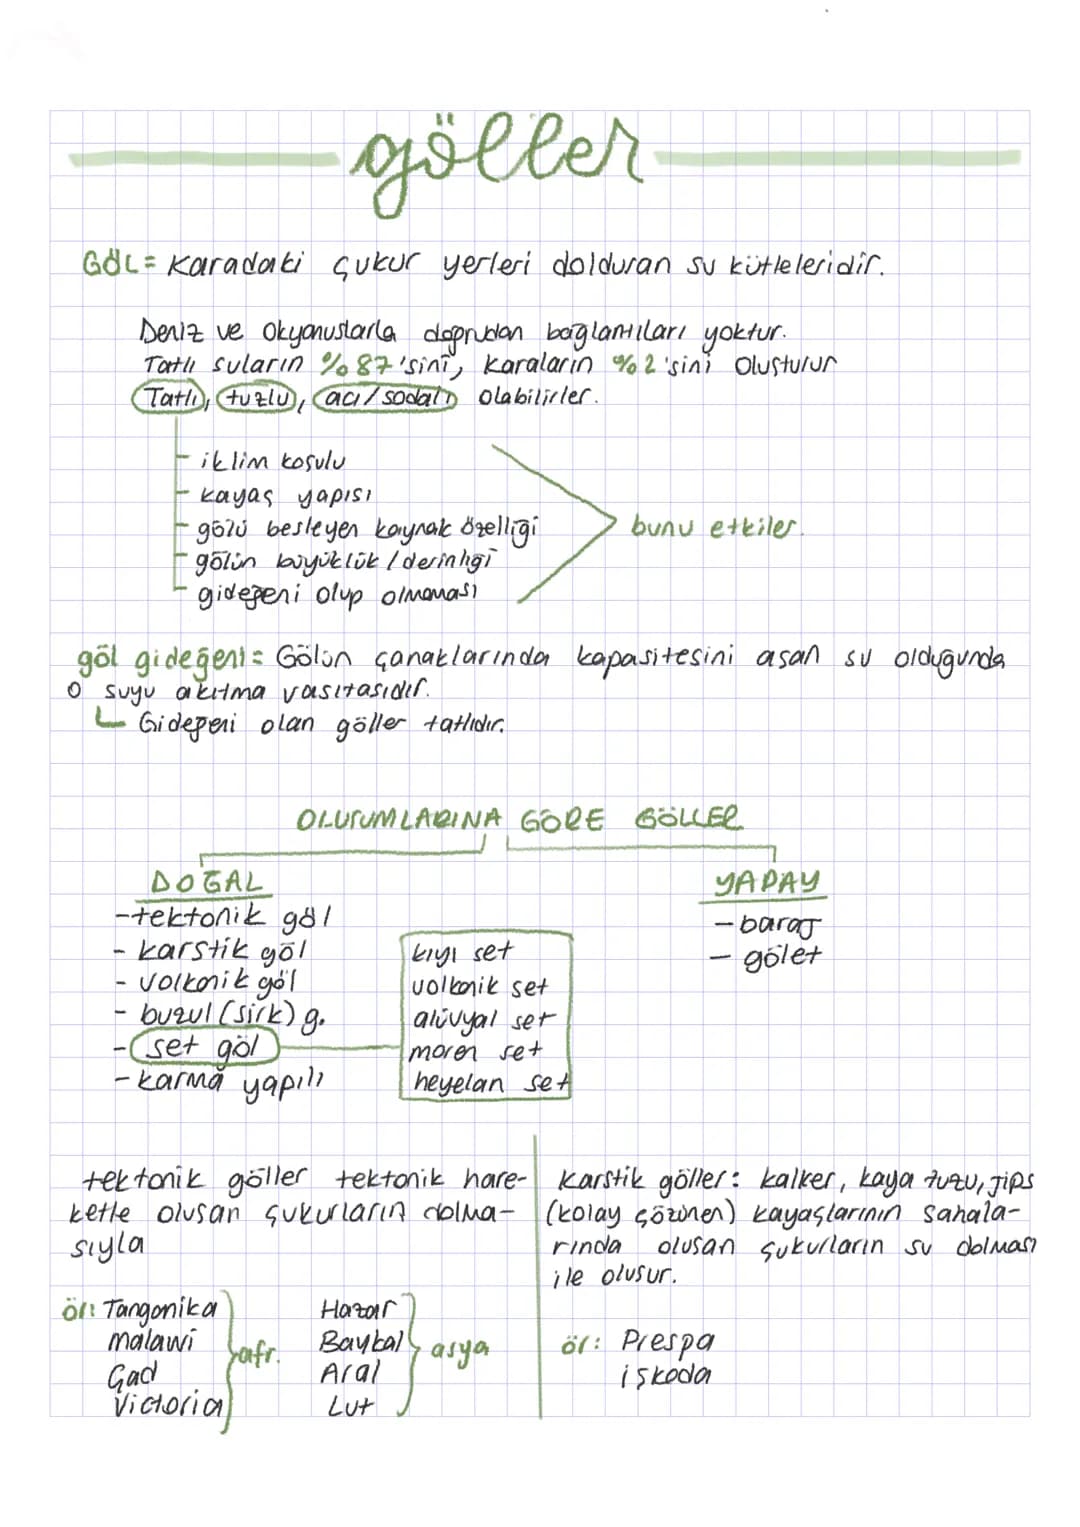 göller
GÖL = Karadaki çukur yerleri dolduran su kütleleridir.
Deniz ve Okyanuslarla doğrudan bağlantıları yoktur.
Tatlı suların %87'sini, karaların %2'sini oluşturur
Tatlı, tuzlu, acı/sodalı olabilirler.
- iklim koşulu
- kayaç yapısı
- gölü besleyen kaynak özelliği
- gölün büyüklük / derinliği
- gideğeni olup olmaması
bunu etkiler.
göl gideğeni = Gölün çanaklarında kapasitesini aşan su olduğunda
o suyu akıtma vasıtasıdır.
Gideğeni olan göller tatlıdır.
OLUŞUMLARINA GÖRE GÖLLER
DOĞAL
- tektonik göl
- karstik göl
- volkanik göl
- buzul (sirk) g.
- set göl
- karma yapılı
kıyı set
volkanik set
alüvyal set
moren set
heyelan set
YAPAY
- baraj
- gölet
tektonik göller tektonik hare-
ketle oluşan çukurların dolma-
sıyla
ör: Tangonika
malawi
Çad
Victoria
afr.
Hazar
Baykal
Aral
Lut
asya
Karstik göller: kalker, kaya tuzu, jips
(kolay çözünen) kayaçlarının sahala-
rında oluşan çukurların su dolması
ile oluşur.
ör: Prespa
işkoda